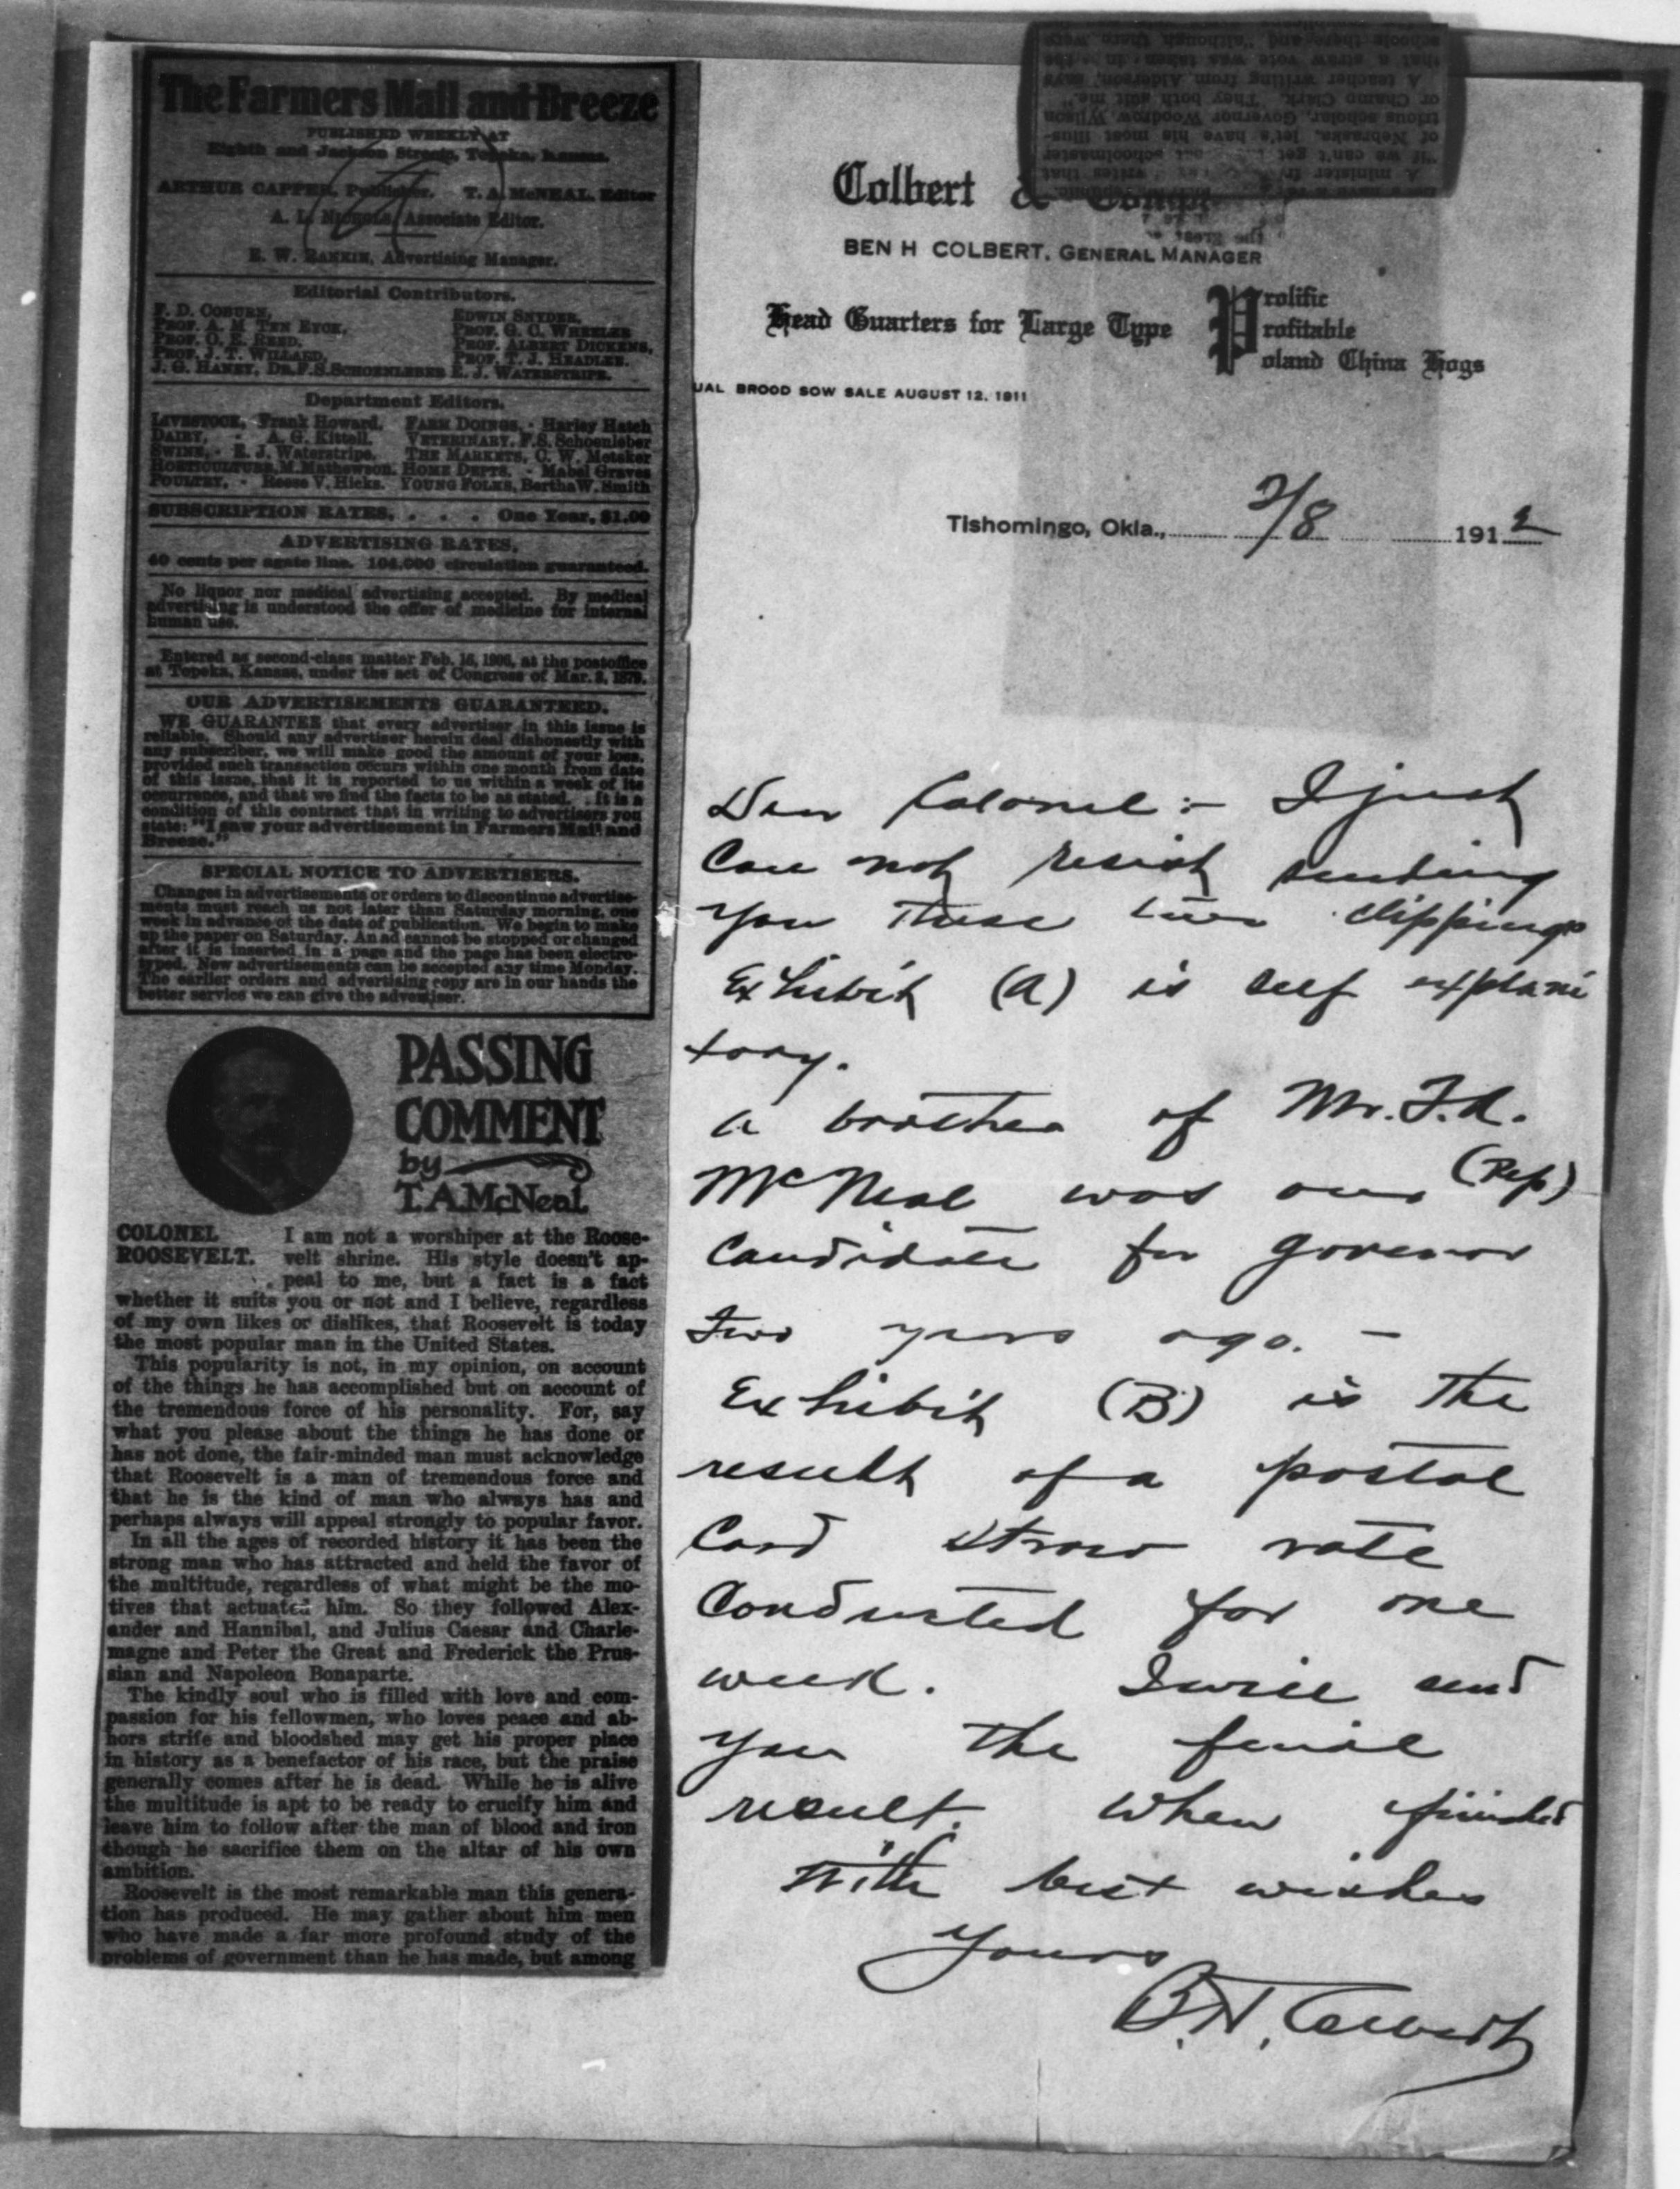 The Farmers Mail and Breeze
PUBLISHED WEEKLY AT
Eighth and Jackson Streets, Topeka, Kansas.
ARTHUR CAPPER, Publisher. T. A. McNEAL, Editor
A. L. NICHOLS, Associate Editor.
E. W. RANKIN, Advertising Manager.
Editorial Contributors.
F. D. COBURN, EDWIN SNYDER,
PROF. A. M. TEN EYCK, PROF. G. C. WHEELER
PROF. O. E. REED, PROF. ALBERT DICKENS,
PROF. J. T. WILLARD, PROF. T. J. HEADLEE,
J. G. HANEY, DR. F. S. SCHOENLEBER E. J. WATERSTRIPE.
Department Editors.
LIVESTOCK, Frank Howard. FARM DOINGS, - Harley Hatch
DAIRY, - A. G. Kittell. VETERINARY, F. S. Schoenleber
SWINE, - E. J. Waterstripe. THE MARKETS, C. W. Metsker
HORTICULTURE, M. Mathewson. HOME DEPTS. - Mabel Graves
POULTRY, - Reese V. Hicks. YOUNG FOLKS, Bertha W. Smith
SUBSCRIPTION RATES, . . . One Year, $1.00
ADVERTISING RATES.
40 cents per agate line. 104,000 circulation guaranteed.
No liquor nor medical advertising accepted. By medical
advertising is understood the offer of medicine for internal
human use.
Entered as second-class matter Feb. 16, 1906, at the postoffice
at Topeka, Kansas, under the act of Congress of Mar. 3, 1879.
OUR ADVERTISEMENTS GUARANTEED.
WE GUARANTEE that every advertiser in this issue is
reliable. Should any advertiser herein deal dishonestly with
any subscriber, we will make good the amount of your loss,
provided such transaction occurs within one month from date
of this issue, that it is reported to us within a week of its
occurrence, and that we find the facts to be as stated. It is a
condition of this contract that in writing to advertisers you
state: "I saw your advertisement in Farmers Mail and
Breeze."
SPECIAL NOTICE TO ADVERTISERS.
Changes in advertisements or orders to discontinue advertise-
ments must reach us not later than Saturday morning, one
week in advance of the date of publication. We begin to make
up the paper on Saturday. An ad cannot be stopped or changed
after it is inserted in a page and the page has been electro-
typed. New advertisements can be accepted any time Monday.
The earlier orders and advertising copy are in our hands the
better service we can give the advertiser.
PASSING
COMMENT
by
T.A. McNeal
COLONEL I am not a worshiper at the Roose-
ROOSEVELT. velt shrine. His style doesn't ap-
peal to me, but a fact is a fact
whether it suits you or not and I believe, regardless
of my own likes or dislikes, that Roosevelt is today
the most popular man in the United States.
This popularity is not, in my opinion, on account
of the things he has accomplished but on account of
the tremendous force of his personality. For, say
what you please about the things he has done or
has not done, the fair-minded man must acknowledge
that Roosevelt is a man of tremendous force and
that he is the kind of man who always has and
perhaps always will appeal strongly to popular favor.
In all the ages of recorded history it has been the
strong man who has attracted and held the favor of
the multitude, regardless of what might be the mo-
tives that actuated him. So they followed Alex-
ander and Hannibal, and Julius Caesar and Charle-
magne and Peter the Great and Frederick the Prus-
sian and Napoleon Bonaparte.
The kindly soul who is filled with love and com-
passion for his fellowmen, who loves peace and ab-
hors strife and bloodshed may get his proper place
in history as a benefactor of his race, but the praise
generally comes after he is dead. While he is alive
the multitude is apt to be ready to crucify him and
leave him to follow after the man of blood and iron
though he sacrifice them on the altar of his own
ambition.
Roosevelt is the most remarkable man this genera-
tion has produced. He may gather about him men
who have made a far more profound study of the
problems of government than he has made, but among
A minister writes that
"if we can't get schoolmaster
of Nebraska, let's have his most illus-
trious scholar, Governor Woodrow Wilson
or Champ Clark. They both suit me."
A teacher writing from Alderson, says
that a straw vote was taken in the
schools there and "although there were
Colbert &
BEN H COLBERT, GENERAL MANAGER
Head Quarters for Large Type Prolific
Profitable
Poland China Hogs
UAL BROOD SOW SALE AUGUST 12, 1911
Tishomingo, Okla., 2/8 1912
Dear Colonel:- I just
Can not resist sending
you these two clippings
Exhibit (A) is self explani
tory.
A brother of Mr. T.A.
McNeal was our (Rep)
Candidate for Governor
two years ago. -
Exhibit (B) is the
result of a postal
Card straw vote
Conducted for one
week. I will send
you the final
result. When finished
With best wishes
Yours
B.H. Colbert